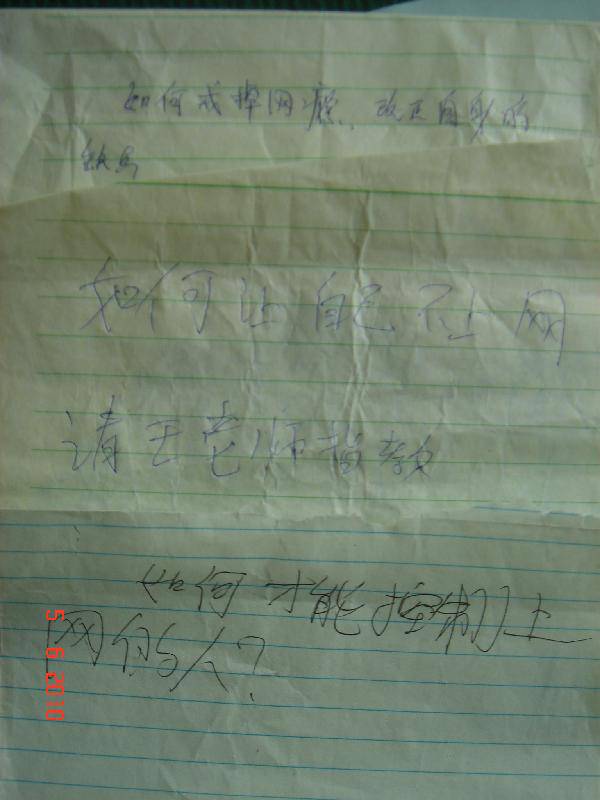 如何戒掉网瘾、改正自身的
缺点
如何可让自己不上网
请王老师指教
如何才能控制上
网的人？
5 6 2010